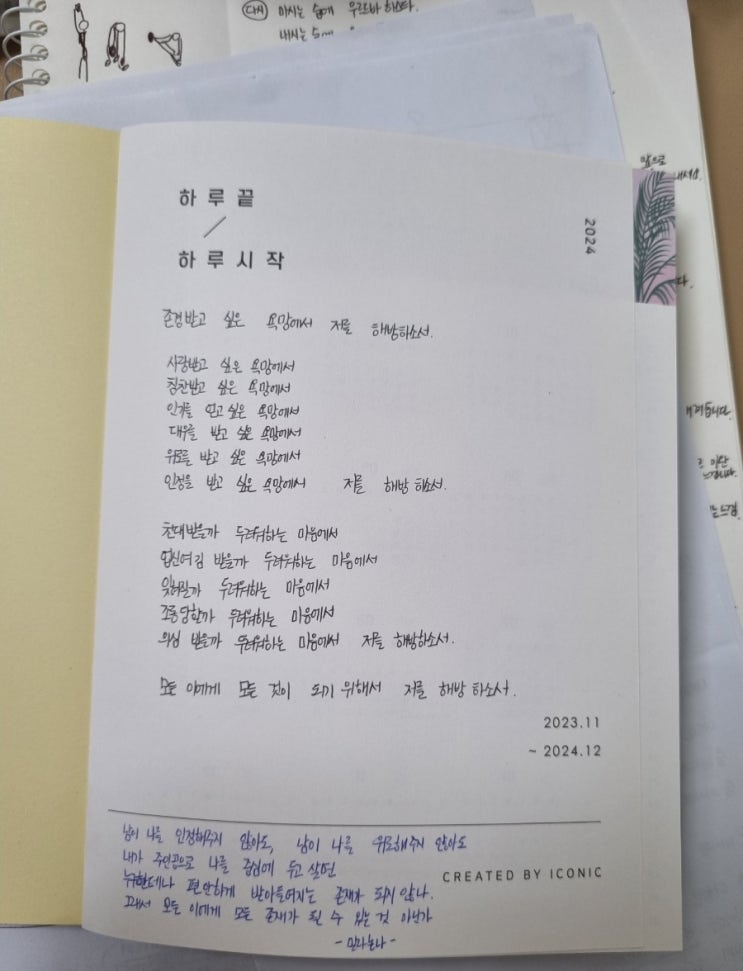 다시 마시는 숨에 우르드바 하스타.
내시는 숨에
앞으로
내쉬고.
다.
느낍니다.
하루끝
/
하루시작
2024
존경받고 싶은 욕망에서 저를 해방하소서.
사랑받고 싶은 욕망에서
칭찬받고 싶은 욕망에서
인기를 얻고 싶은 욕망에서
대우를 받고 싶은 욕망에서
위로를 받고 싶은 욕망에서
인정을 받고 싶은 욕망에서 저를 해방 하소서.
천대받을까 두려워하는 마음에서
업신여김 받을까 두려워하는 마음에서
잊혀질까 두려워하는 마음에서
조롱당할까 두려워하는 마음에서
의심 받을까 두려워하는 마음에서 저를 해방하소서.
모든 이에게 모든 것이 되기 위해서 저를 해방 하소서.
2023.11
~ 2024.12
남이 나를 인정해주지 않아도, 남이 나를 위로해주지 않아도
내가 주인공으로 나를 중심에 두고 살면
누구한테나 편안하게 받아들여지는 존재가 되지 않나.
그래서 모든 이에게 모든 존재가 될 수 있는 것 아닌가
CREATED BY ICONIC